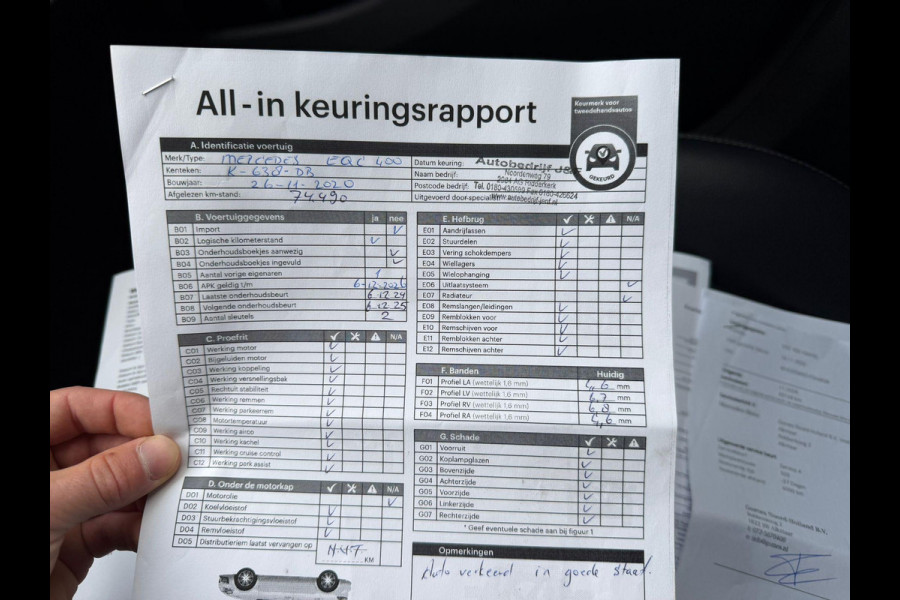 All-in keuringsrapport
Keurmerk voor
tweedehandsautos
GEKEURD
A. Identificatie voertuig
Merk/Type: MERCEDES EQC 400
Kenteken: K-638-DB
Bouwjaar: 26-11-2020
Afgelezen km-stand: 74490
Datum keuring:
Naam bedrijf:
Postcode bedrijf:
Uitgevoerd door specialist:
Autobedrijf J&F
Noordenweg 79
2984 AG Ridderkerk
Tel. 0180-430189 Fax 0180-426624
www.autobedrijf-jenf.nl
B. Voertuiggegevens ja nee
B01 Import
B02 Logische kilometerstand
B03 Onderhoudsboekjes aanwezig
B04 Onderhoudsboekjes ingevuld
B05 Aantal vorige eigenaren 1
B06 APK geldig t/m 6-12-2026
B07 Laatste onderhoudsbeurt 6.12.24
B08 Volgende onderhoudsbeurt 6.12.25
B09 Aantal sleutels 2
C. Proefrit N/A
C01 Werking motor
C02 Bijgeluiden motor
C03 Werking koppeling
C04 Werking versnellingsbak
C05 Rechtuit stabiliteit
C06 Werking remmen
C07 Werking parkeerrem
C08 Motortemperatuur
C09 Werking airco
C10 Werking kachel
C11 Werking cruise control
C12 Werking park assist
D. Onder de motorkap N/A
D01 Motorolie
D02 Koelvloeistof
D03 Stuurbekrachtigingsvloeistof
D04 Remvloeistof
D05 Distributieriem laatst vervangen op
KM
E. Hefbrug N/A
E01 Aandrijfassen
E02 Stuurdelen
E03 Vering schokdempers
E04 Wiellagers
E05 Wielophanging
E06 Uitlaatsysteem
E07 Radiateur
E08 Remslangen/leidingen
E09 Remblokken voor
E10 Remschijven voor
E11 Remblokken achter
E12 Remschijven achter
F. Banden Huidig
F01 Profiel LA (wettelijk 1,6 mm) 4,6 mm
F02 Profiel LV (wettelijk 1,6 mm) 6,7 mm
F03 Profiel RV (wettelijk 1,6 mm) 6,8 mm
F04 Profiel RA (wettelijk 1,6 mm) 4,6 mm
G. Schade
G01 Voorruit
G02 Koplampglazen
G03 Bovenzijde
G04 Achterzijde
G05 Voorzijde
G06 Linkerzijde
G07 Rechterzijde
* Geef eventuele schade aan bij figuur 1
Opmerkingen
Auto verkeerd in goede staat.